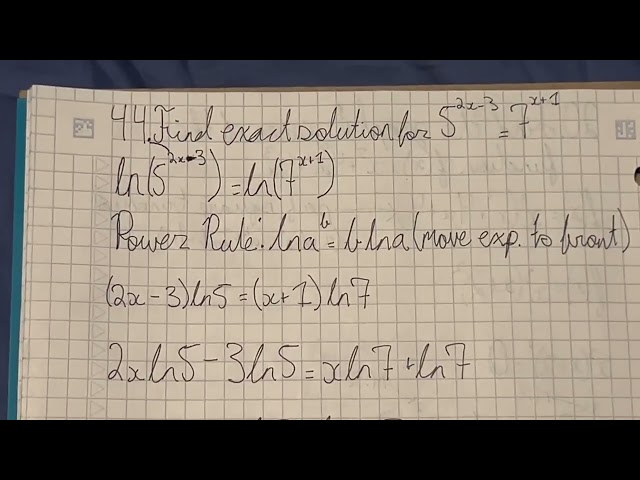 44. Find exact solution for 5^{2x-3} = 7^{x+1}
ln(5^{2x-3}) = ln(7^{x+1})
Power Rule: ln a^b = b·ln a (move exp. to front)
(2x-3)ln5 = (x+1)ln7
2xln5 - 3ln5 = xln7 + ln7